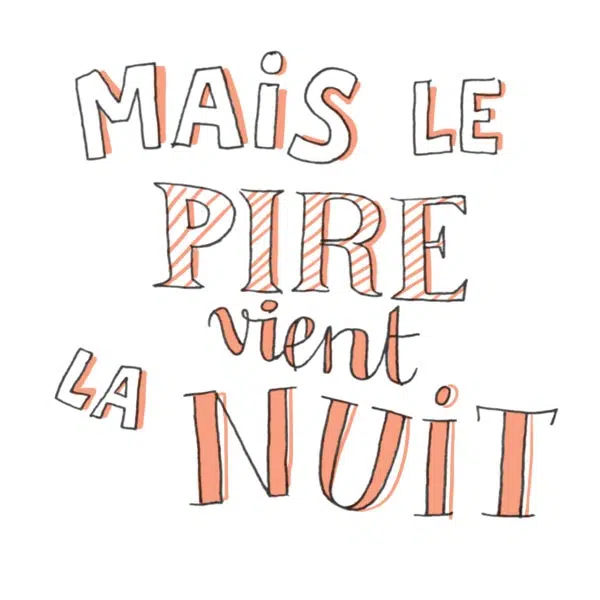 MAiS LE
PIRE
vient
LA NUiT